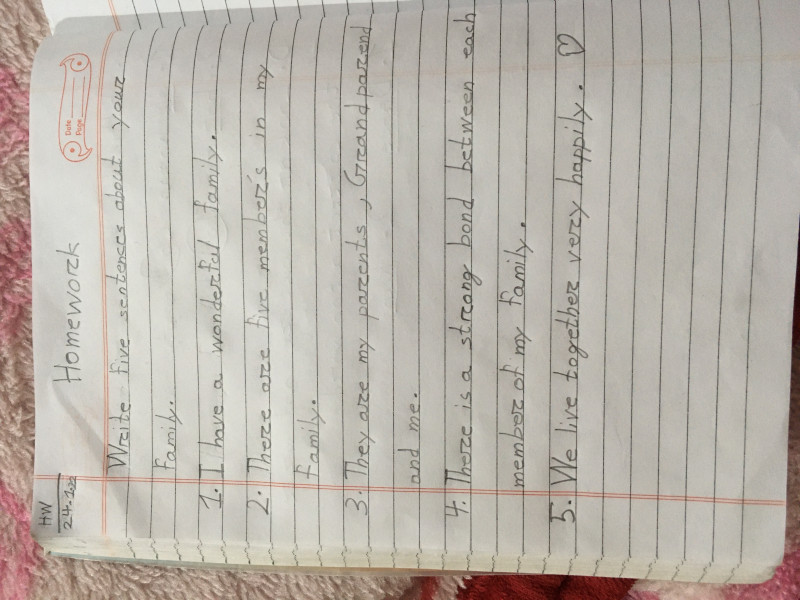 HW
24.
Date
Page
Homework
Write five sentences about your
family.
1. I have a wonderful family.
2. There are five member's in my
family.
3. They are my parents, Greandparend
and me.
4. There is a strong bond between each
member of my family.
5. We live together very happily. ♡